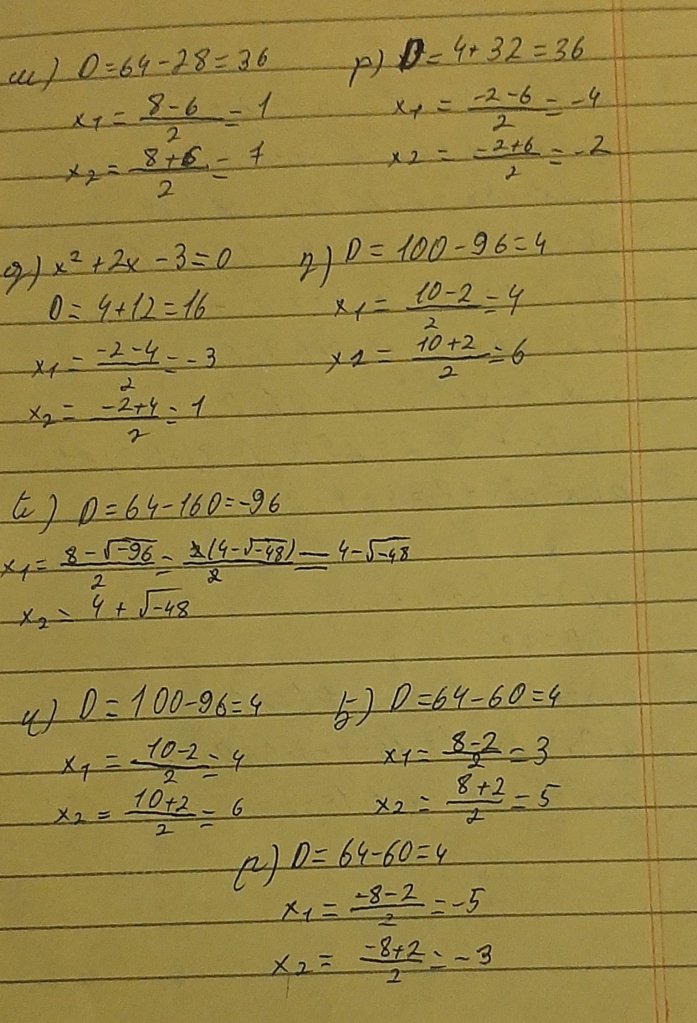 ա) D=64-28=36
x₁ = (8-6)/2 = 1
x₂ = (8+6)/2 = 7
բ) D = 4+32 = 36
x₁ = (-2-6)/2 = -4
x₂ = (-2+6)/2 = -2
գ) x² + 2x - 3 = 0
D = 4+12 = 16
x₁ = (-2-4)/2 = -3
x₂ = (-2+4)/2 = 1
դ) D = 100-96 = 4
x₁ = (10-2)/2 = 4
x2 = (10+2)/2 = 6
ե) D = 64-160 = -96
x₁ = (8-√-96)/2 = 2(4-√-48)/2 = 4-√-48
x₂ = 4 + √-48
D = 100-96 = 4
x₁ = (10-2)/2 = 4
x₂ = (10+2)/2 = 6
D = 64-60 = 4
x₁ = (8-2)/2 = 3
x₂ = (8+2)/2 = 5
D = 64-60 = 4
x₁ = (-8-2)/2 = -5
x₂ = (-8+2)/2 = -3